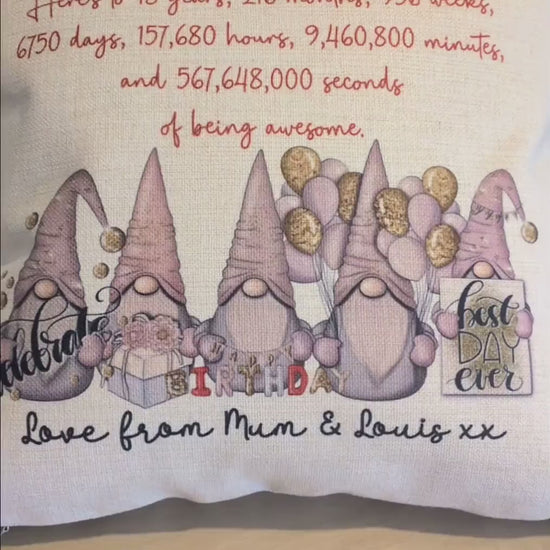 Here's to 18 years, 216 months, 936 weeks,
6750 days, 157,680 hours, 9,460,800 minutes,
and 567,648,000 seconds
of being awesome.
Celebrate
HAPPY
BIRTHDAY
best
DAY
ever
Love from Mum & Louis xx